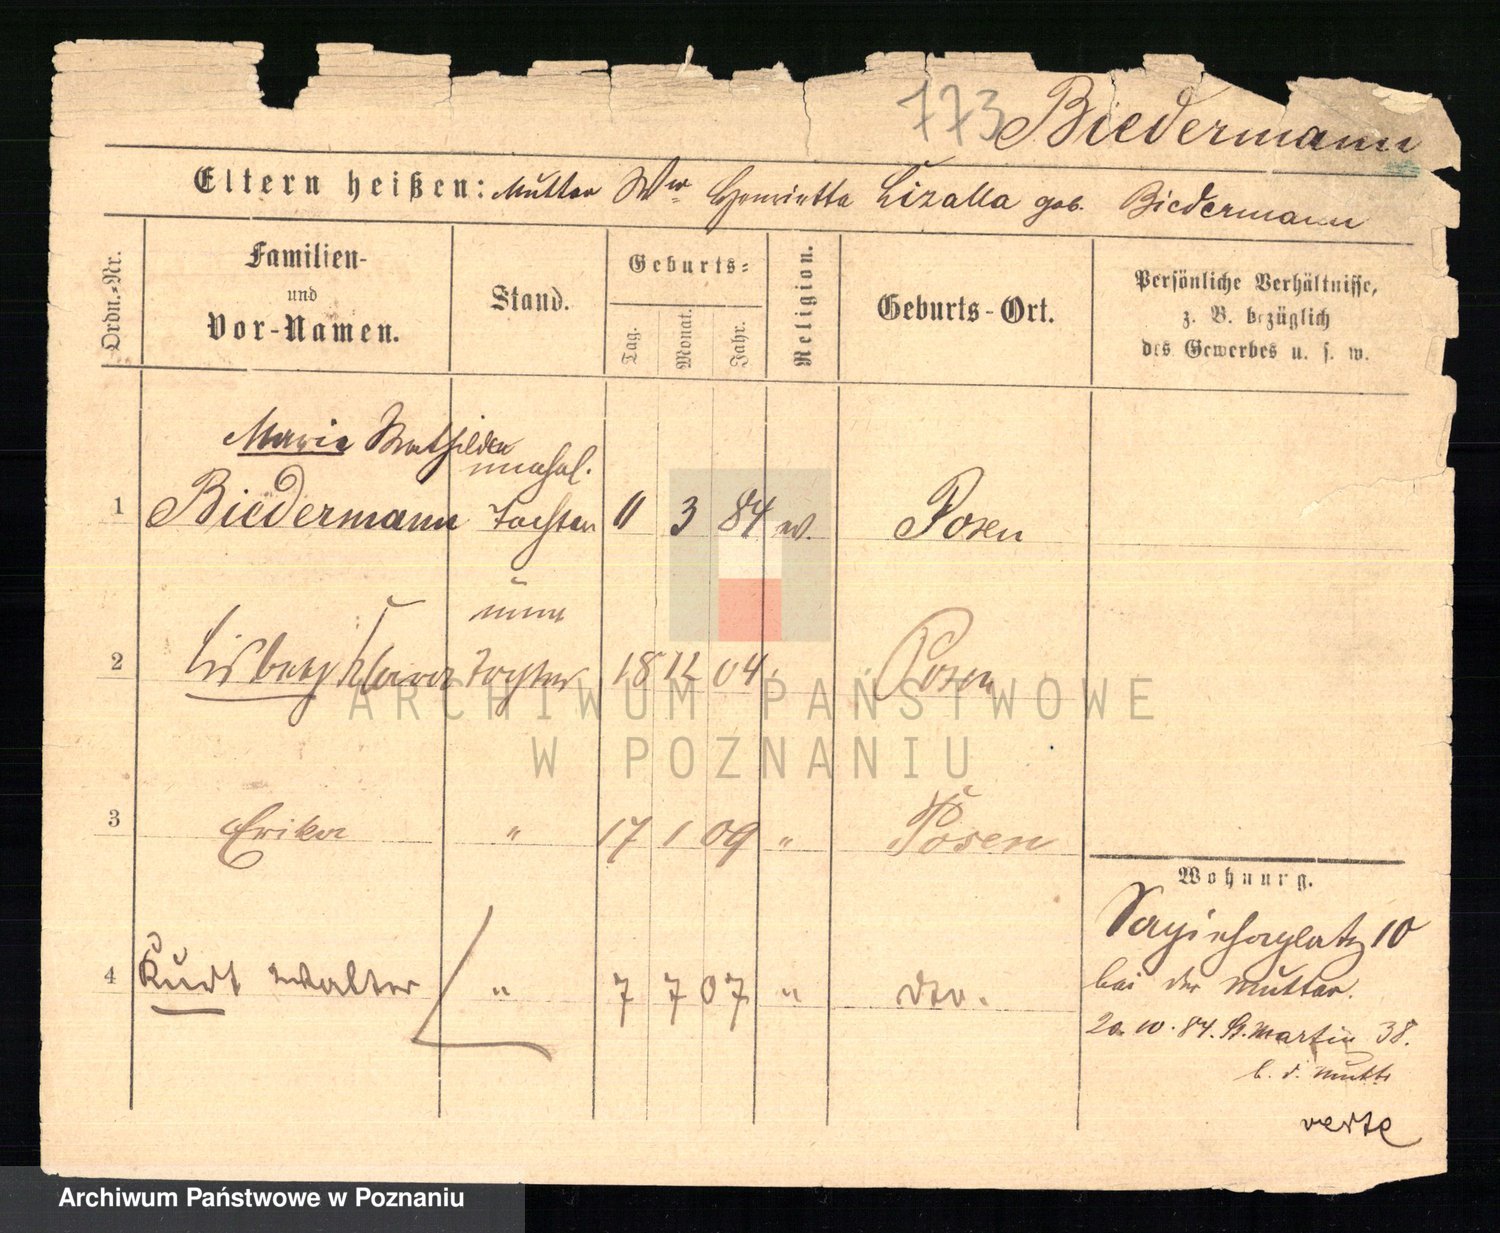 773 Biedermann
Eltern heißen: Mutter Ww Henriette Lizalla geb. Biedermann
Ordn.-Nr.
Familien-
und
Vor-Namen.
Stand.
Geburts-
Tag.
Monat.
Jahr.
Religion.
Geburts-Ort.
Persönliche Verhältnisse,
z. B. bezüglich
des Gewerbes u. s. w.
Marie Mathilden
unehel.
1 Biedermann Tochter 11 3 84 ev. Posen
2 Clara Tochter 18 12 04 Posen
ARCHIWUM PAŃSTWOWE
W POZNANIU
3 Erika " 17 1 09 " Posen
4 Kurt Walter " 7 7 07 " dto.
Wohnung.
Sapiehaplatz 10
bei der Mutter.
20. 10. 84. St. Martin 38.
b. d. Mutter
verte
Archiwum Państwowe w Poznaniu